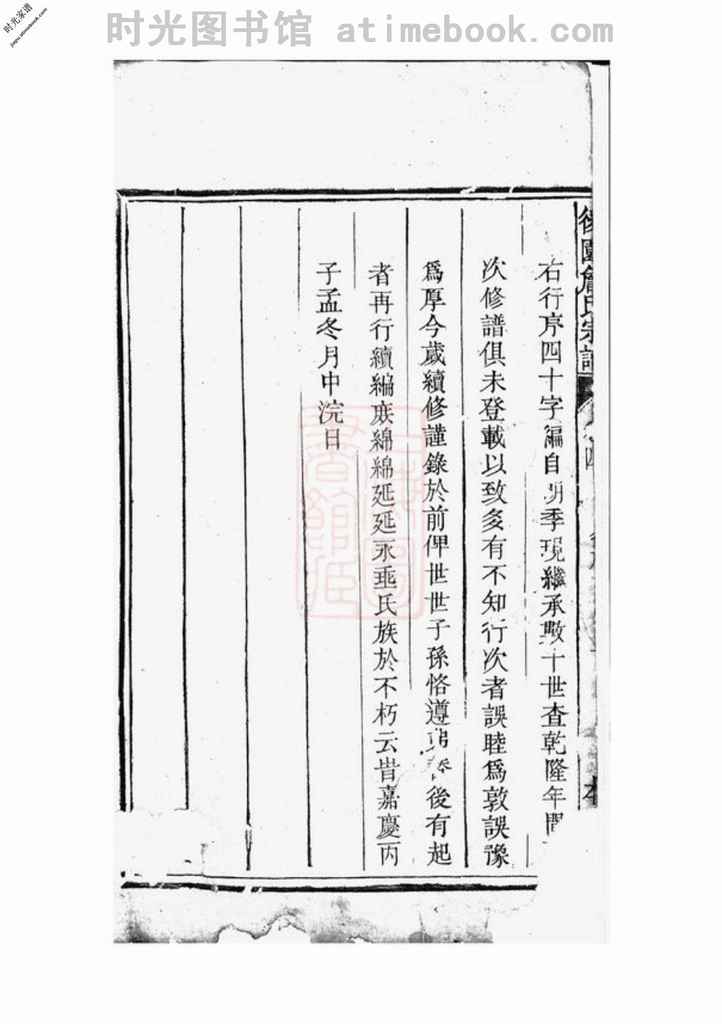 时光家谱
jiapu.atimebook.com
时光图书馆 atimebook.com
後園詹氏宗譜
右行序四十字編自明季現繼承數十世查乾隆年間
次修譜俱未登載以致多有不知行次者誤睦爲敦誤豫
爲厚今歲續修謹錄於前俾世世子孫恪遵 後有起
者再行續編庻綿綿延延永垂氏族於不朽云旹嘉慶丙
子孟冬月中浣日